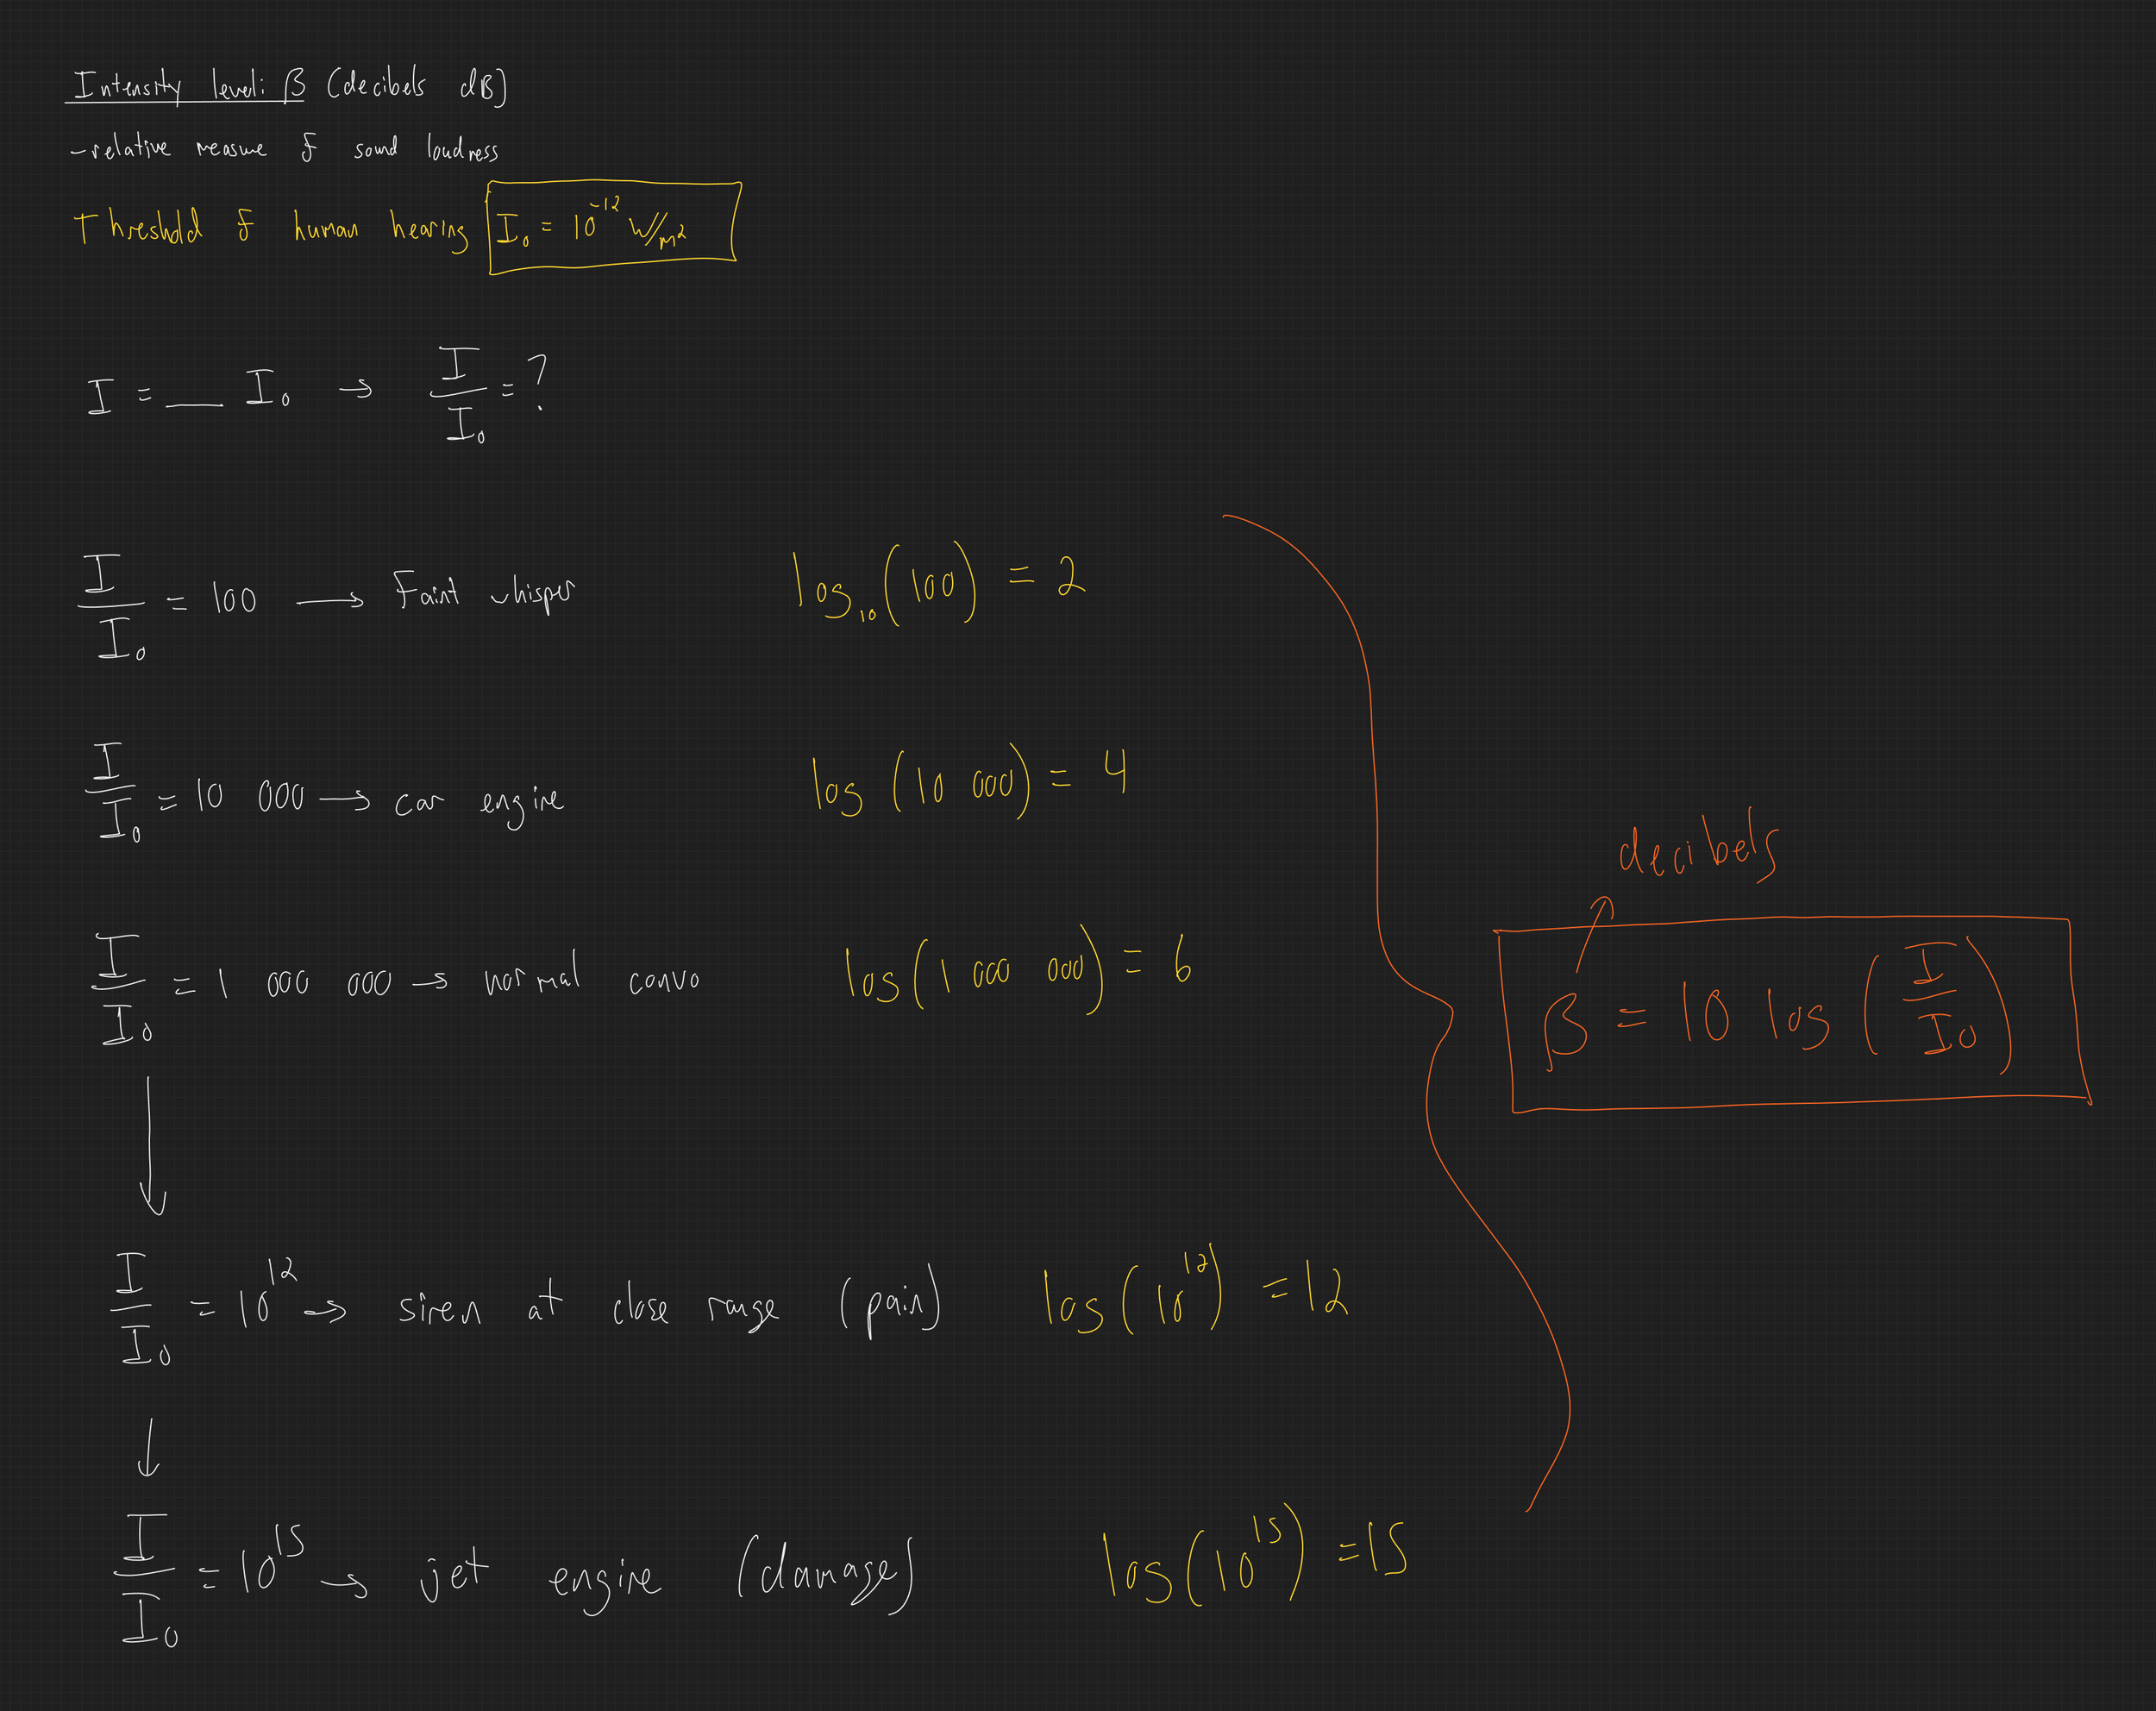 Intensity level: β (decibels dB)
-relative measure of sound loudness
Threshold of human hearing I₀ = 10⁻¹² W/m²
I = __ I₀ → I/I₀ = ?
I/I₀ = 100 → Faint whisper log₁₀(100) = 2
I/I₀ = 10 000 → car engine log (10 000) = 4
I/I₀ = 1 000 000 → normal convo log(1 000 000) = 6
decibels
β = 10 log (I/I₀)
I/I₀ = 10¹² → siren at close range (pain) log(10¹²) = 12
I/I₀ = 10¹⁵ → jet engine (damage) log(10¹⁵) = 15